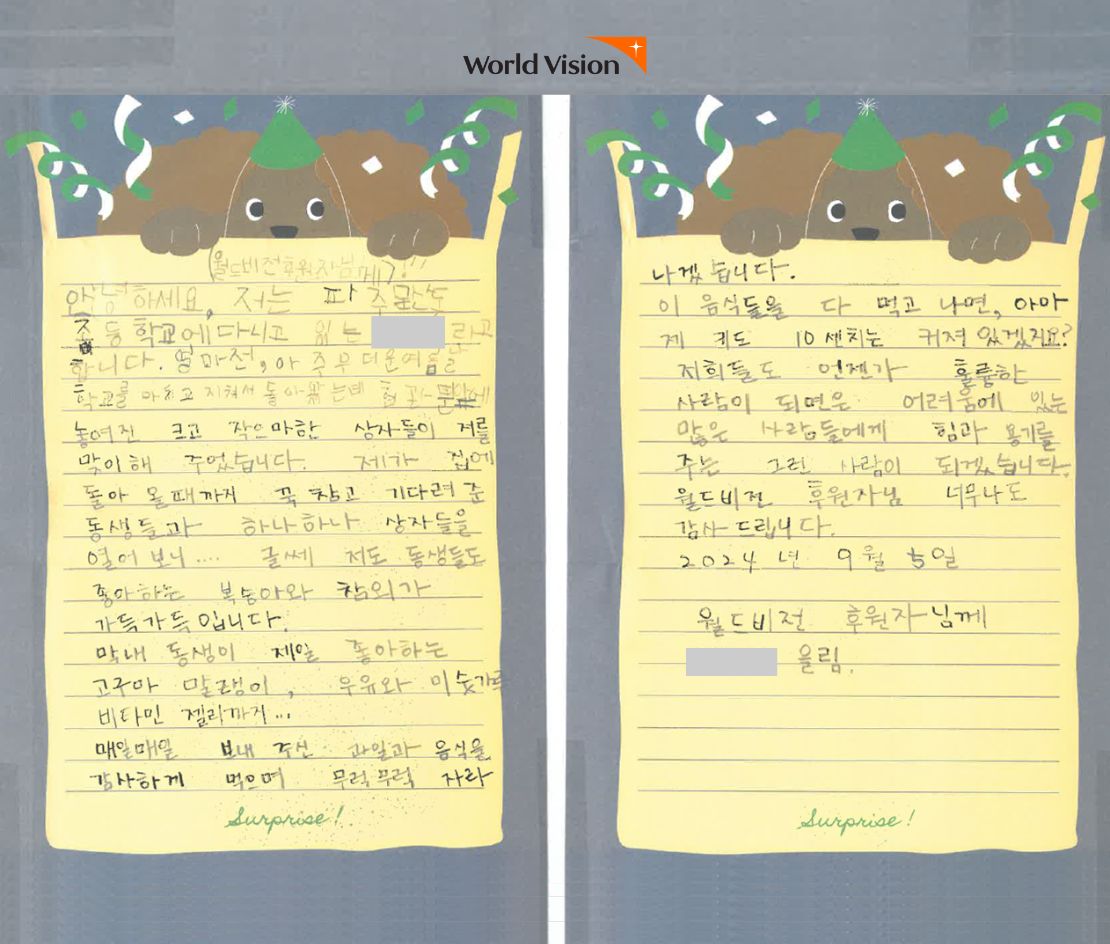 World Vision
(월드비전후원자님께)!!
안녕하세요, 저는 파주문산
초등학교에 다니고 있는 라고
합니다. 얼마전, 아주 무더운여름날
학교를 마치고 지쳐서 돌아왔는데 현관문앞에
놓여진 크고 작으마한 상자들이 저를
맞이해 주었습니다. 제가 집에
돌아 올때까지 꾹 참고 기다려 준
동생들과 하나하나 상자들을
열어 보니.... 글쎄 저도 동생들도
좋아하는 복숭아와 참외가
가득가득입니다.
막내 동생이 제일 좋아하는
고구마 말랭이, 우유와 미숫가루
비타민 젤리까지...
매일매일 보내 주신 과일과 음식을
감사하게 먹으며 무럭무럭 자라
Surprise!
나겠습니다.
이 음식들을 다 먹고 나면, 아마
제 키도 10센치는 커져 있겠지요?
저희들도 언젠가 훌륭한
사람이 되면은 어려움에 있는
많은 사람들에게 힘과 용기를
주는 그런 사람이 되겠습니다.
월드비전 후원자님 너무나도
감사드립니다.
2024년 9월 5일
월드비전 후원자님께
올림.
Surprise!